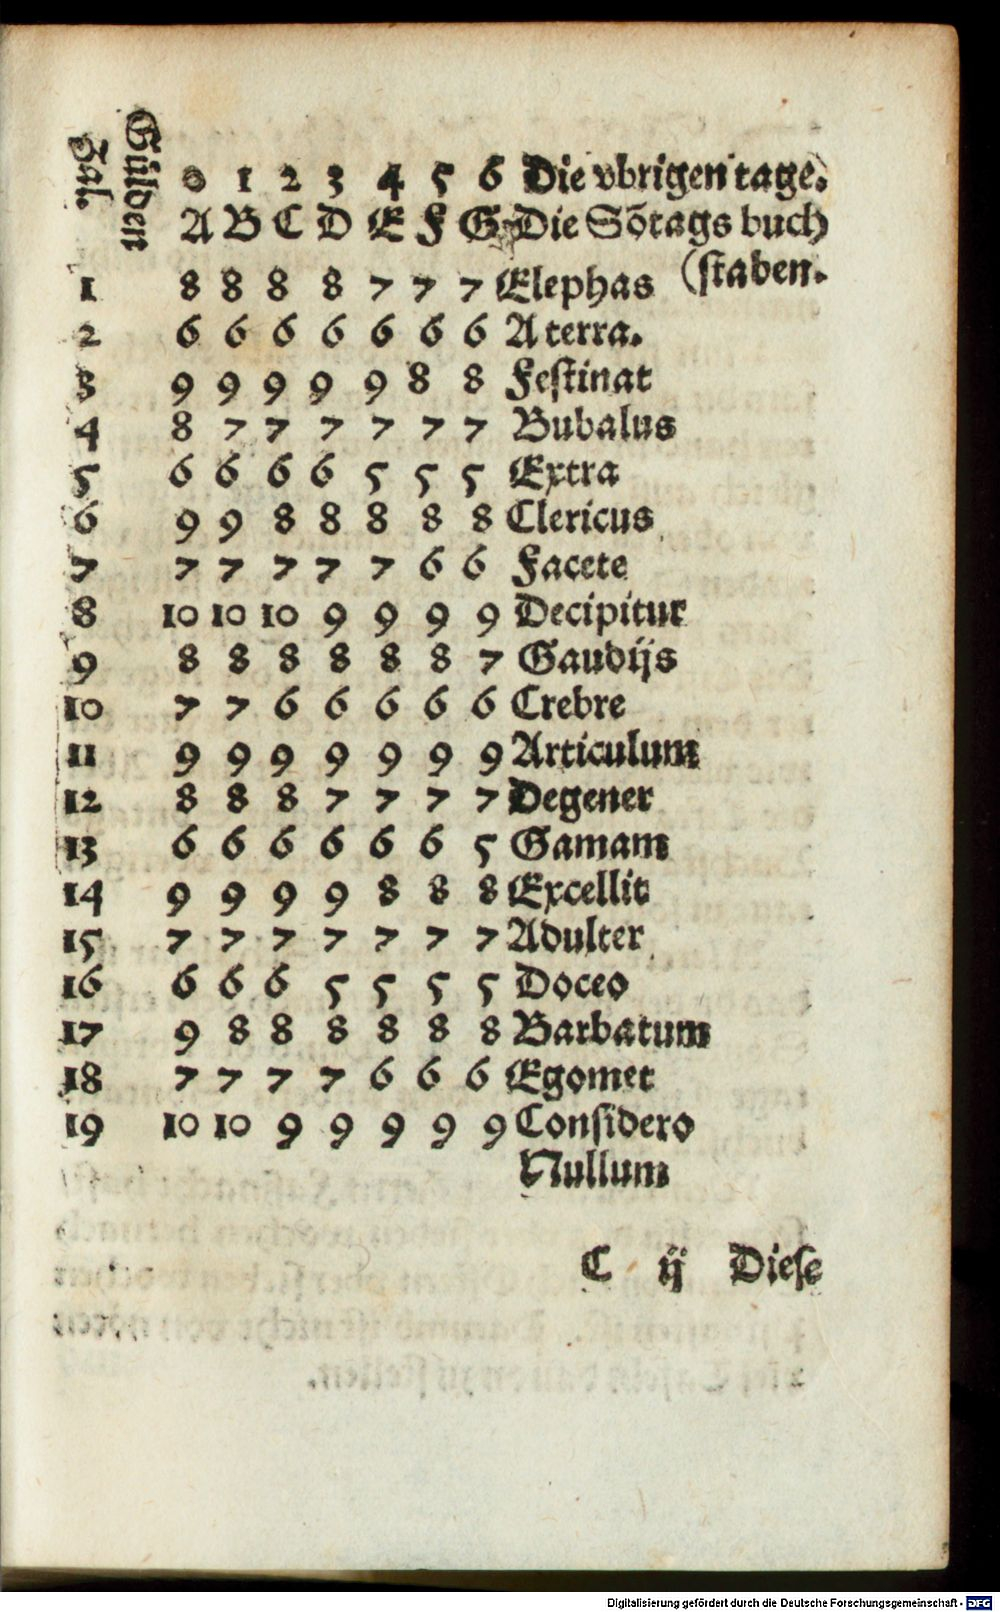 Gülden
Zal.
0 1 2 3 4 5 6 Die vbrigen tage.
A B C D E F G Die Sõtags buch
(ſtaben.
1 8 8 8 8 7 7 7 Elephas
2 6 6 6 6 6 6 6 A terra.
3 9 9 9 9 9 8 8 Feſtinat
4 8 7 7 7 7 7 7 Bubalus
5 6 6 6 6 5 5 5 Extra
6 9 9 8 8 8 8 8 Clericus
7 7 7 7 7 7 6 6 Facete
8 10 10 10 9 9 9 9 Decipitur
9 8 8 8 8 8 8 7 Gaudijs
10 7 7 6 6 6 6 6 Crebre
11 9 9 9 9 9 9 9 Articulum
12 8 8 8 7 7 7 7 Degener
13 6 6 6 6 6 6 5 Gamam
14 9 9 9 9 8 8 8 Excellit
15 7 7 7 7 7 7 7 Adulter
16 6 6 6 5 5 5 5 Doceo
17 9 8 8 8 8 8 8 Barbatum
18 7 7 7 7 6 6 6 Egomet
19 10 10 9 9 9 9 9 Conſidero
Nullum
C ij Dieſe
Digitalisierung gefördert durch die Deutsche Forschungsgemeinschaft - DFG